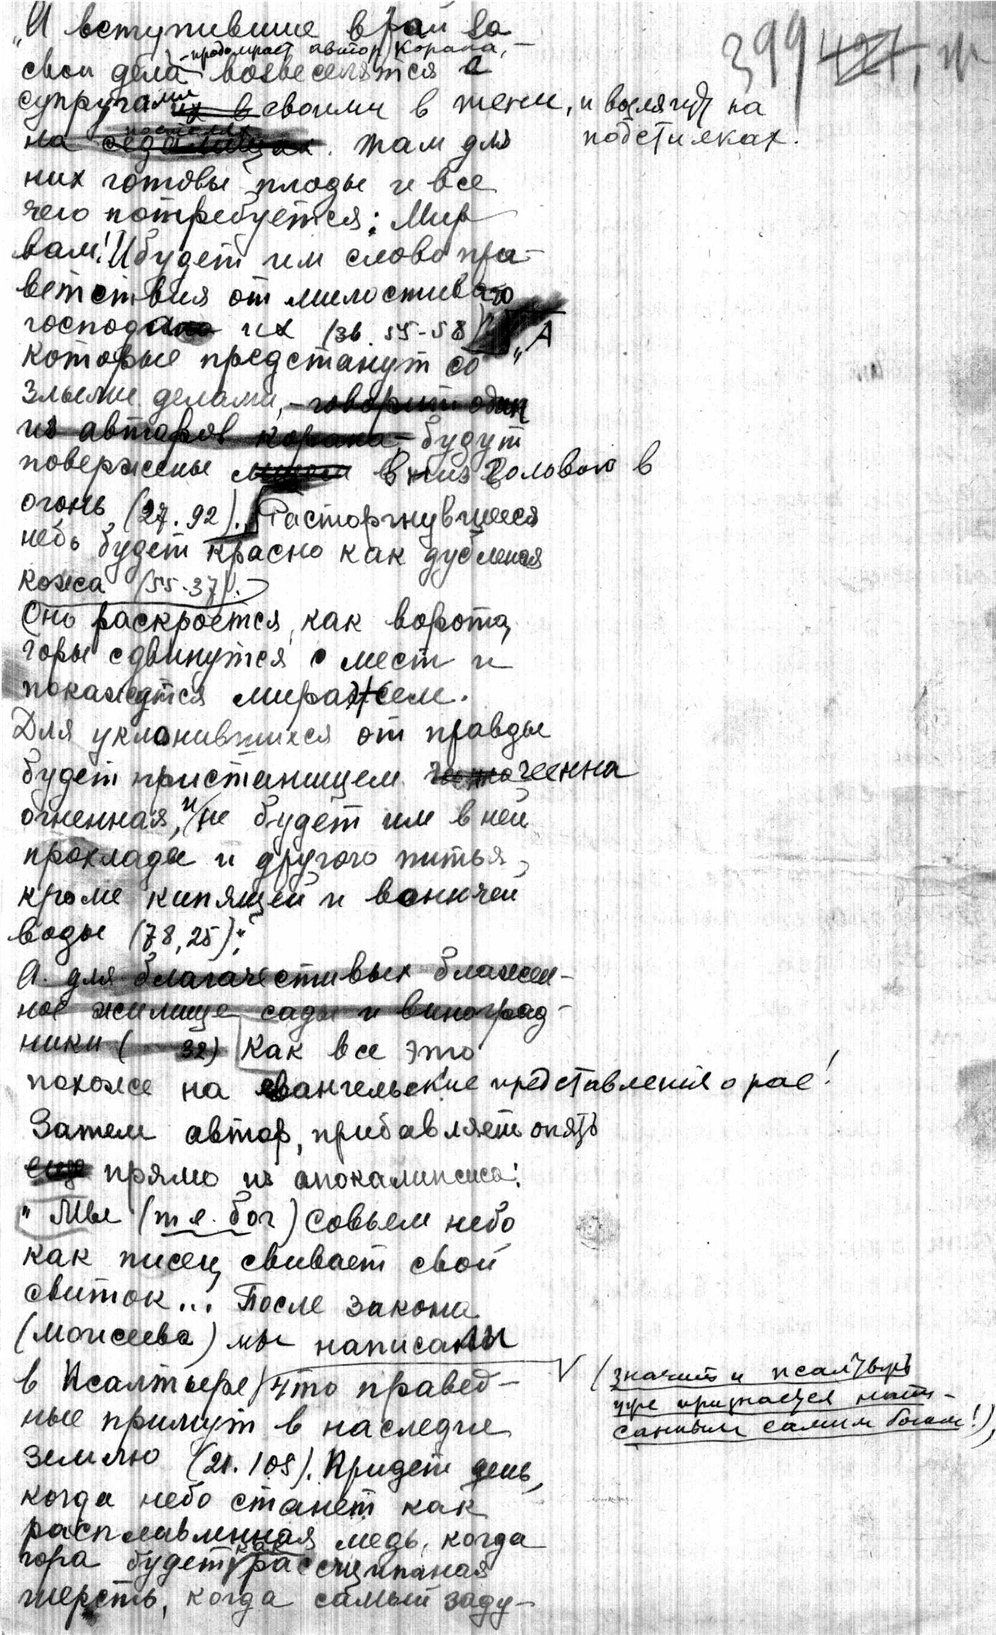 399 421, 
„И вступившие в рай за
– продолжает автор Корана, –
свои дела возвеселятся с
супругами их в своими в тени, и возлягут на
на седалищах постелях. Там для подстилках.
них готовы плоды и все
чего потребуется: Мир
вам! И будет им слово при-
ветствия от милостиваго
господа их (36. 55-58)". „А
которые предстанут со
злыми делами, – говорит один
из авторов корана – будут
повержены вниз головою в
огонь (27. 92). Расторгнувшееся
небо будет красно как дубленая
кожа (55-37).
Оно раскроется, как ворота,
горы сдвинутся с мест и
покажутся миражем.
Для уклонившихся от правды
будет пристанищем геенна
огненная, и не будет им в ней
прохлады и другого питья,
кроме кипящей и вонючей
воды (78, 25)".
А для благочестивых блажен-
ное жилище сады и виноград-
ники ( 32) Как все это
похоже на евангельские представления о рае!
Затем автор, прибавляет опять
еще прямо из апокалипсиса:
„Мы (т.е. бог) совьем небо
как писец свивает свой
свиток... После закона
(Моисеева) мы написали
в Псалтыре, что правед- (значит и псалтырь
ные примут в наследие уже признается напи-
землю (21. 105). Придет день, санным самим богом!),
когда небо станет как
расплавленная медь, когда
гора будет как рассщипаная
шерсть, когда самый заду-